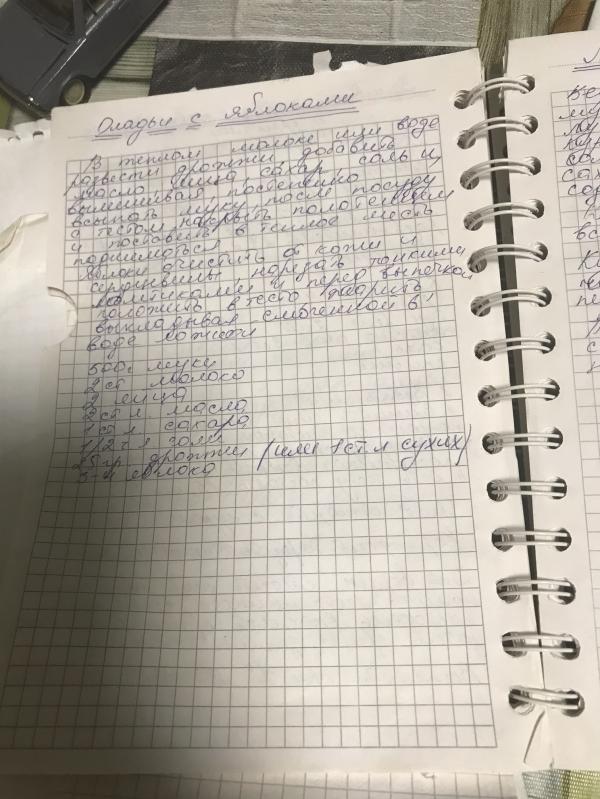 Оладьи с яблоками
В теплом молоке или воде
развести дрожжи добавить
масло яйца сахар соль и
вымешивая постепенно
всыпать муку после посуду
с тестом накрыть полотенцем
и поставить в теплое место
подниматься
Яблоки очистить от кожи и
сердцевины, нарезать тонкими
ломтиками и перед выпечкой
положить в тесто жарить
выкладывая смоченной в
воде ложкой
500г муки
2 ст молоко
2 яйца
2 ст л масло
1 ст л сахара
1/2 ч л соли
25 гр дрожжи (или 1 ст л сухих)
3-4 яблоко